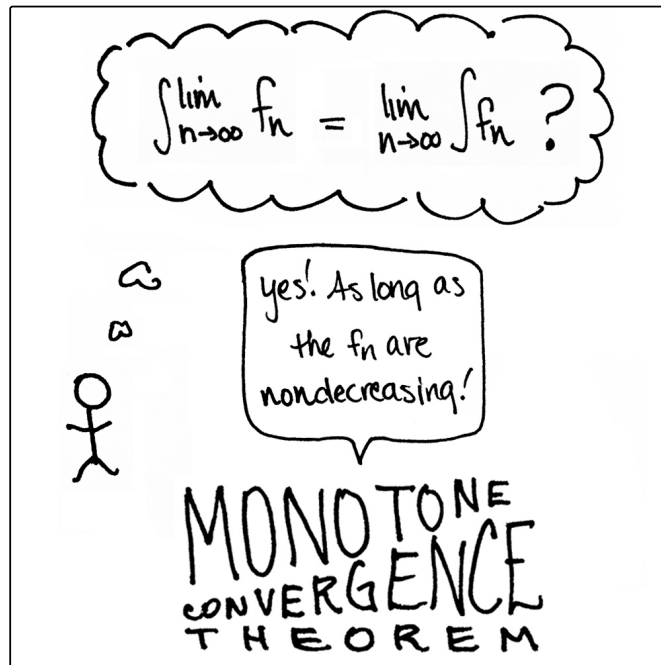 ∫ lim n→∞ fn = lim n→∞ ∫ fn ?
yes! As long as
the fn are
nondecreasing!
MONOTONE
CONVERGENCE
THEOREM